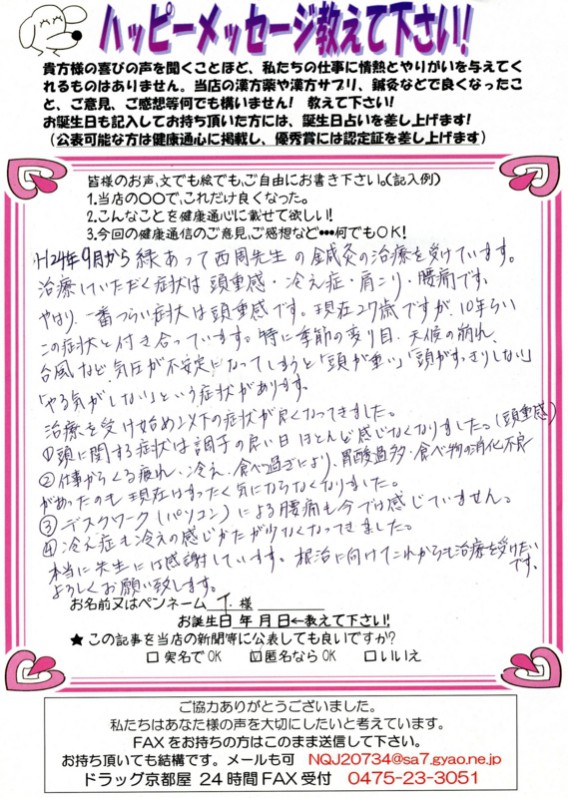 ハッピーメッセージ教えて下さい!
貴方様の喜びの声を聞くことほど、私たちの仕事に情熱とやりがいを与えてく
れるものはありません。当店の漢方薬や漢方サプリ、鍼灸などで良くなったこ
と、ご意見、ご感想等何でも構いません! 教えて下さい!
お誕生日も記入してお持ち頂いた方には、誕生日占いを差し上げます!
(公表可能な方は健康通心に掲載し、優秀賞には認定証を差し上げます)
皆様のお声、文でも絵でも、ご自由にお書き下さい。(記入例)
1.当店の〇〇で、これだけ良くなった。
2.こんなことを健康通心に載せて欲しい!
3.今回の健康通信のご意見、ご感想など・・・何でもOK!
H24年9月から縁あって西周先生の鍼灸の治療を受けています。
治療していただく症状は頭重感・冷え症・肩こり・腰痛です。
やはり、一番つらい症状は頭重感です。現在27歳ですが、10年くらい
この症状と付き合っています。特に季節の変り目、天候の崩れ、
台風など、気圧が不安定になってしまうと「頭が重い」「頭がすっきりしない」
「やる気がしない」という症状があります。
治療を受け始め以下の症状が良くなってきました。
①頭に関する症状は調子の良い日ほとんど感じなくなりました。(頭重感)
②仕事からくる疲れ・冷え・食べ過ぎにより、胃酸過多・食べ物の消化不良
があったのも現在はまったく気にならなくなりました。
③デスクワーク(パソコン)による腰痛も今では感じていません。
④冷え症も冷えの感じかたが少なくなってきました。
本当に先生には感謝しています。根治に向けてこれからも治療を受けたい
です。
よろしくお願い致します。
お名前又はペンネーム T. 様
お誕生日 年 月 日←教えて下さい!
★ この記事を当店の新聞等に公表しても良いですか?
□ 実名でOK ☑ 匿名ならOK □ いいえ
ご協力ありがとうございました。
私たちはあなた様の声を大切にしたいと考えています。
FAXをお持ちの方はこのまま送信して下さい。
お持ち頂いても結構です。メールも可 NQJ20734@sa7.gyao.ne.jp
ドラッグ京都屋 24時間FAX受付 0475-23-3051